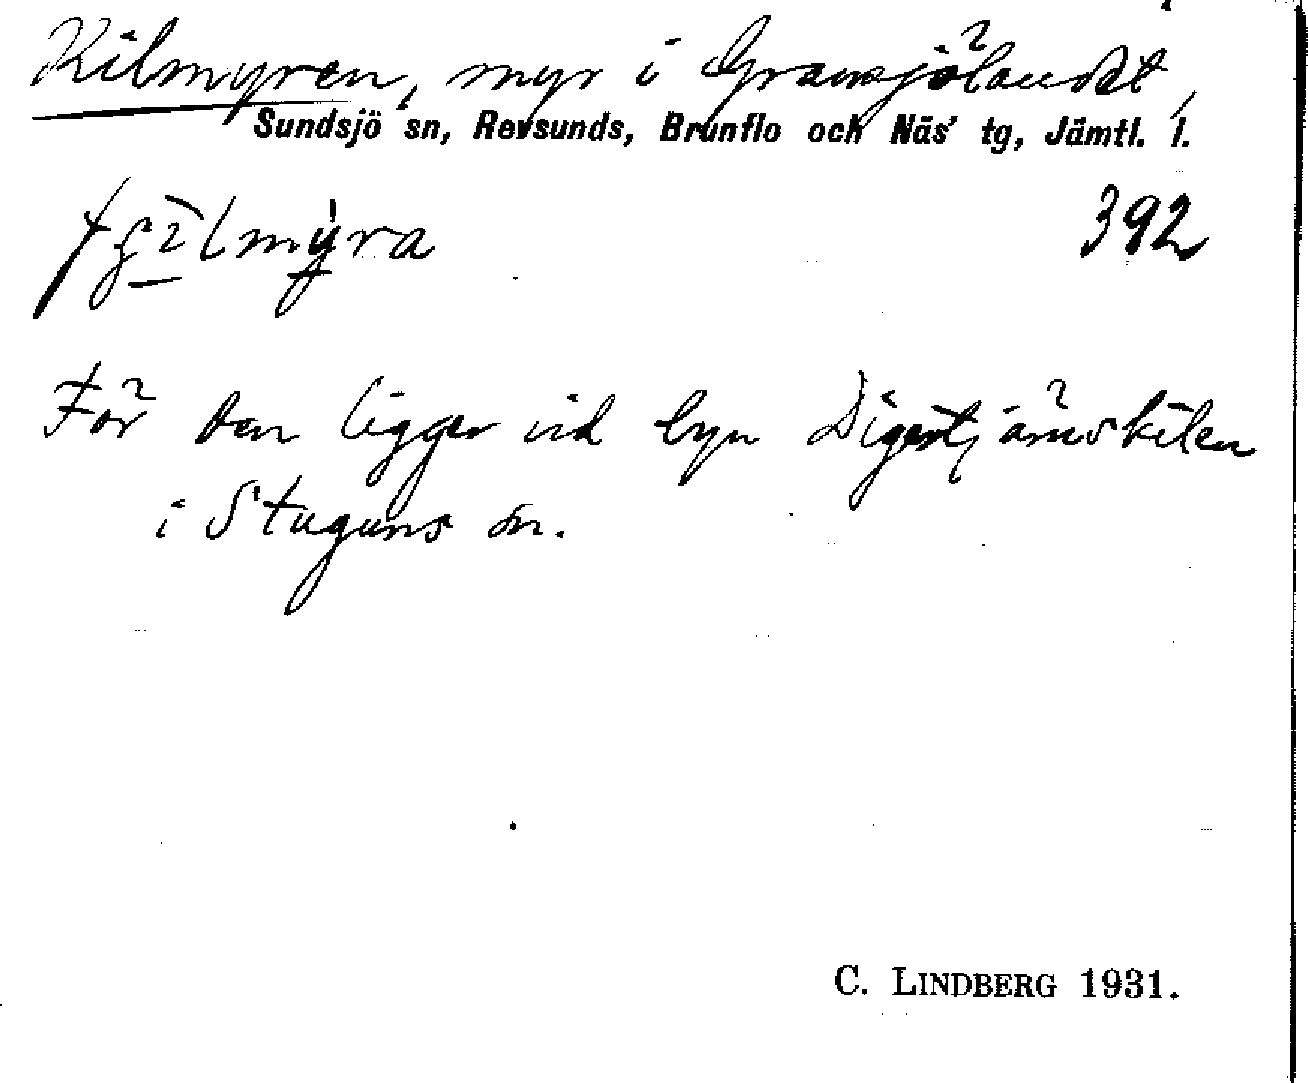 Kilmyren, myr i Gransjölandet,
Sundsjö sn, Revsunds, Brunflo och Näs' tg, Jämtl. l.
392
För den ligger vid byn Digertjärnskilen
i Stuguns sn.
C. LINDBERG 1931.